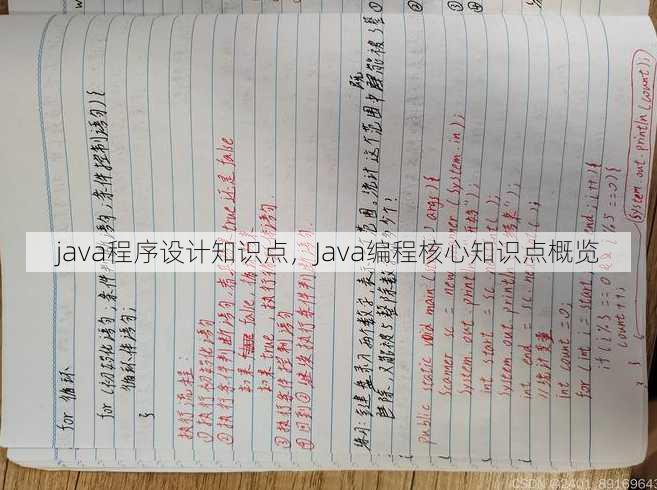 for 循环
for (初始化语句;条件判断语句;条件控制语句){
循环体语句;
}
执行流程:
①执行初始化语句
②执行条件判断语句,看其是true还是false
如果 false,循
如果 true,执行循环体语句
③执行条件控制语句
④回到②继续执行条件判断语句
练习:键盘录入两个数字,表示一个范围。统计这个范围中既能被3整
除、又能被5整除数 多少个?
public static void main( args){
Scanner sc = new Scanner (System.in);
System.out.print 开始");
int start = sc.n t();
System.out.print 结束");
int end = sc.n t();
//统计变量
int count =0;
for (int i= start; end; i++){
if (i%3 ==0 && i%5 ==0){
count ++;
}
}
System.out.println(count);
java程序设计知识点,Java编程核心知识点概览
CSDN @2401_89169643